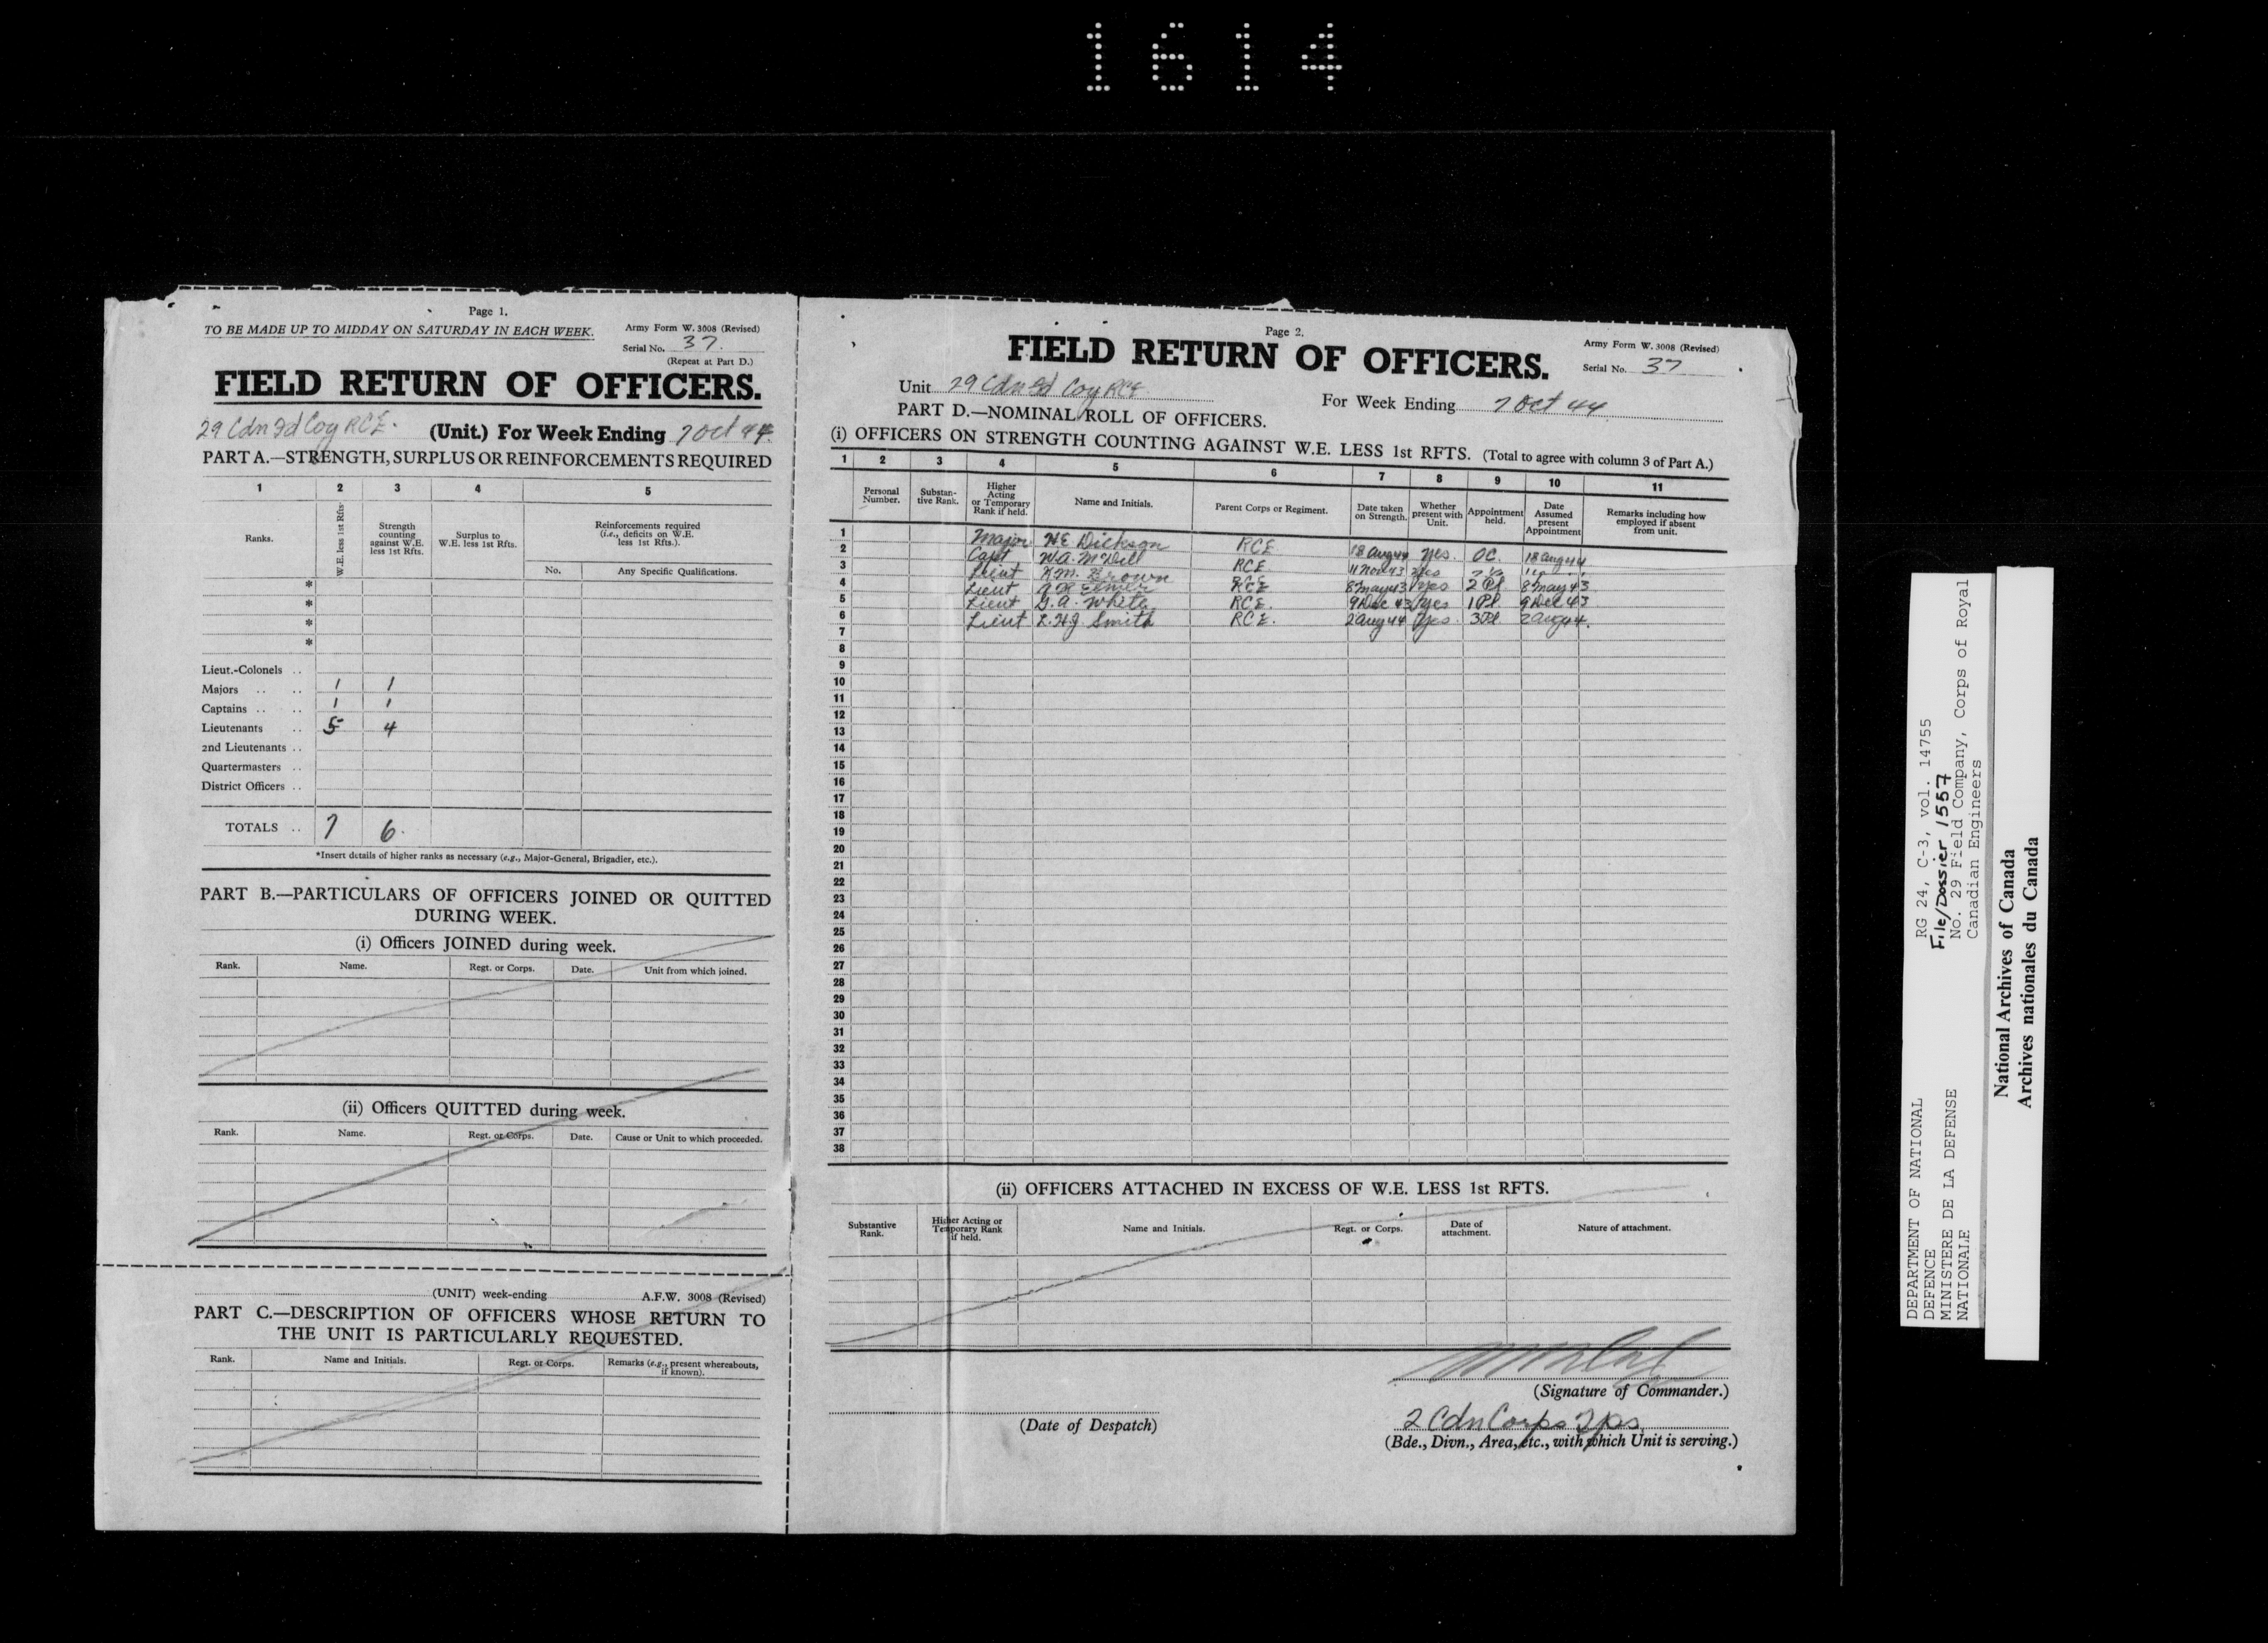 1614
Page 1.
TO BE MADE UP TO MIDDAY ON SATURDAY IN EACH WEEK.
Army Form W. 3008 (Revised)
Serial No. 37.
(Repeat at Part D.)
FIELD RETURN OF OFFICERS.
29 Cdn Fd Coy RCE. (Unit.) For Week Ending 7 Oct 44.
PART A.—STRENGTH, SURPLUS OR REINFORCEMENTS REQUIRED
1 2 3 4 5
Ranks. W.E. less 1st Rfts. Strength counting against W.E. less 1st Rfts. Surplus to W.E. less 1st Rfts. Reinforcements required (i.e., deficits on W.E. less 1st Rfts.).
No. Any Specific Qualifications.
*
*
*
*
Lieut.-Colonels ..
Majors .. .. 1 1
Captains .. .. 1 1
Lieutenants .. 5 4
2nd Lieutenants ..
Quartermasters ..
District Officers ..
TOTALS .. 7 6.
*Insert details of higher ranks as necessary (e.g., Major-General, Brigadier, etc.).
PART B.—PARTICULARS OF OFFICERS JOINED OR QUITTED
DURING WEEK.
(i) Officers JOINED during week.
Rank. Name. Regt. or Corps. Date. Unit from which joined.
(ii) Officers QUITTED during week.
Rank. Name. Regt. or Corps. Date. Cause or Unit to which proceeded.
(UNIT) week-ending A.F.W. 3008 (Revised)
PART C.—DESCRIPTION OF OFFICERS WHOSE RETURN TO
THE UNIT IS PARTICULARLY REQUESTED.
Rank. Name and Initials. Regt. or Corps. Remarks (e.g., present whereabouts, if known).
Page 2.
FIELD RETURN OF OFFICERS.
Army Form W. 3008 (Revised)
Serial No. 37
Unit 29 Cdn Fd Coy RCE
For Week Ending 7 Oct 44
PART D.—NOMINAL ROLL OF OFFICERS.
(i) OFFICERS ON STRENGTH COUNTING AGAINST W.E. LESS 1st RFTS. (Total to agree with column 3 of Part A.)
1 2 3 4 5 6 7 8 9 10 11
Personal Number. Substantive Rank. Higher Acting or Temporary Rank if held. Name and Initials. Parent Corps or Regiment. Date taken on Strength. Whether present with Unit. Appointment held. Date Assumed present Appointment Remarks including how employed if absent from unit.
1 Major H.E Dickson RCE 18 Aug 44 yes. OC. 18 Aug 44
2 Capt W.A. RCE 11 Nov 43 yes
3 Lieut K.M. Brown RCE 8 May 43 yes 2 Pl 8 May 43
4 Lieut RCE
5 Lieut G.A. White RCE. 9 Dec 43 yes 1 Pl 9 Dec 43
6 Lieut L.H.J. Smith RCE. 2 Aug 44 yes 3 Pl 2 Aug 44.
7
8
9
10
11
12
13
14
15
16
17
18
19
20
21
22
23
24
25
26
27
28
29
30
31
32
33
34
35
36
37
38
(ii) OFFICERS ATTACHED IN EXCESS OF W.E. LESS 1st RFTS.
Substantive Rank. Higher Acting or Temporary Rank if held. Name and Initials. Regt. or Corps. Date of attachment. Nature of attachment.
(Signature of Commander.)
(Date of Despatch)
2 Cdn Corps Tps
(Bde., Divn., Area, etc., with which Unit is serving.)
DEPARTMENT OF NATIONAL
DEFENCE
MINISTERE DE LA DEFENSE
NATIONALE
RG 24, C-3, vol. 14755
File/Dossier 1557
No. 29 Field Company, Corps of Royal
Canadian Engineers
National Archives of Canada
Archives nationales du Canada